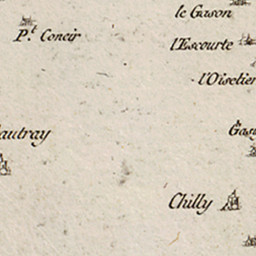 le Gason
P.t Concir
l'Escourte
l'Oisetier
autray
Chilly